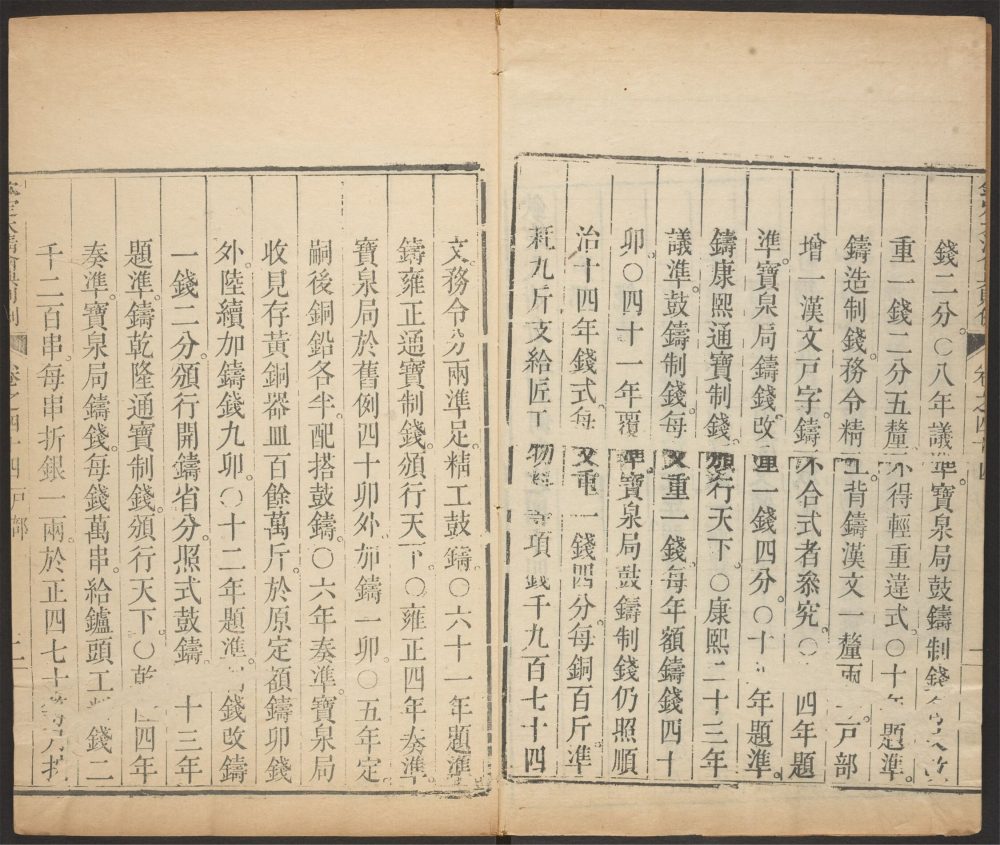 錢二分。〇八年議準寶泉局鼓鑄制錢每文改
重一錢二分五釐不得輕重違式〇十年題準。
鑄造制錢務令精工背鑄漢文一釐兩戸部
增一漢文戸字鑄不合式者叅究。〇四年題
準寶泉局鑄錢改重一錢四分。〇十年題準。
鑄康熙通寶制錢。頒行天下。〇康熙二十三年
議準鼓鑄制錢。每文重一錢。每年額鑄錢四十
卯。〇四十一年覆準寶泉局鼓鑄制錢仍照順
治十四年錢式。每文重一錢四分。每銅百斤準
耗九斤。支給匠工物料項錢千九百七十四
文。務令分兩準足。精工鼓鑄。〇六十一年題準。
鑄雍正通寶制錢。頒行天下。〇雍正四年奏準。
寶泉局於舊例四十卯外。加鑄一卯。〇五年定
嗣後銅鉛各半。配搭鼓鑄。〇六年奏準。寶泉局
收見存黃銅器皿百餘萬斤。於原定額鑄卯錢
外。陸續加鑄錢九卯。〇十二年題準。錢改鑄
一錢二分。頒行開鑄省分。照式鼓鑄。十三年
題準。鑄乾隆通寶制錢。頒行天下。〇乾四年
奏準。寶泉局鑄錢。每錢萬串。給鑪頭工錢二
千二百串。每串折銀一兩。於正四七十
卷之四十四戸部